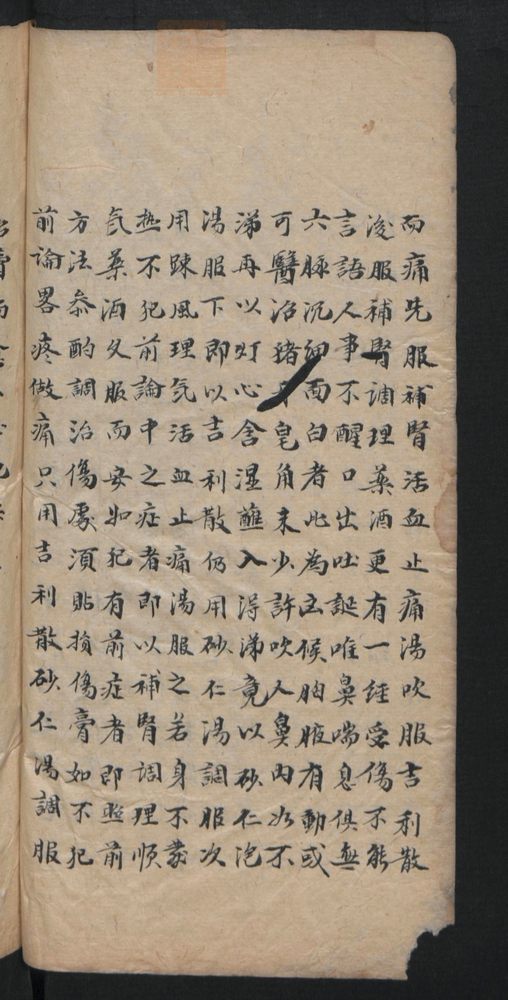 而痛先服補腎活血止痛湯吹服吉利散
後服補腎調理藥酒更有一經受傷不能
言語人事不醒口出吐誕唯鼻喘息俱無
六脉沉細面白者此為凶候胸腋有動或
可醫治猪牙皂角末少許吹人鼻內如不
涕再以灯心含湿蘸入淂涕竟以砂仁泡
湯服下即以吉利散仍用砂仁湯調服次
用踈風理気活血止痛湯服之若身不發
热不犯前論中之症者即以補腎調理順
氣藥酒久服而安如犯有前症者即照前
方法叅酌調治傷處須貼損傷膏如不犯
前論畧疼做痛只用吉利散砂仁湯調服